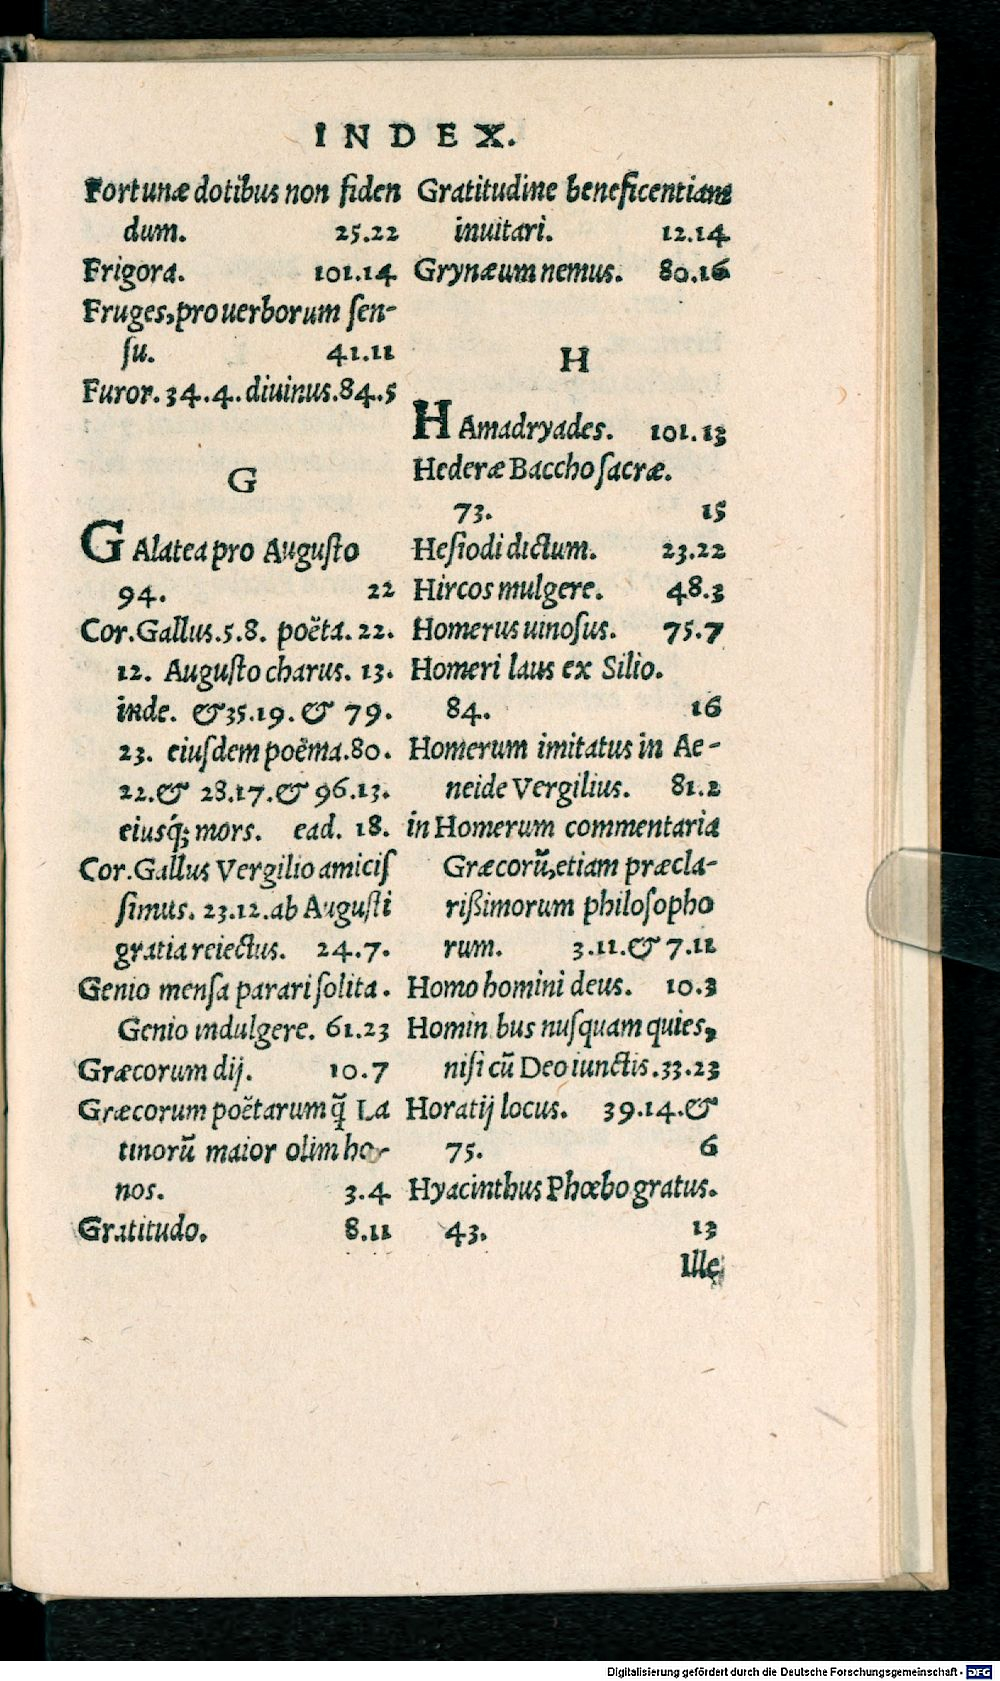 INDEX.
Fortunæ dotibus non fiden
dum. 25.22
Frigora. 101.14
Fruges, pro uerborum ſen-
ſu. 41.11
Furor. 34.4. diuinus. 84.5
G
GAlatea pro Auguſto
94. 22
Cor. Gallus. 5.8. poëta. 22.
12. Auguſto charus. 13.
inde. & 35.19. & 79.
23. eiuſdem poëma. 80.
22. & 28.17. & 96.13.
eiusq́; mors. ead. 18.
Cor. Gallus Vergilio amiciſ
ſimus. 23.12. ab Auguſti
gratia reiectus. 24.7.
Genio menſa parari ſolita.
Genio indulgere. 61.23
Græcorum dij. 10.7
Græcorum poëtarum q̃ La
tinorũ maior olim ho-
nos. 3.4
Gratitudo. 8.11
Gratitudine beneficentiam
inuitari. 12.14
Grynæum nemus. 80.16
H
HAmadryades. 101.13
Hederæ Baccho ſacræ.
73. 15
Heſiodi dictum. 23.22
Hircos mulgere. 48.3
Homerus uinoſus. 75.7
Homeri laus ex Silio.
84. 16
Homerum imitatus in Ae-
neide Vergilius. 81.2
in Homerum commentaria
Græcorũ, etiam præcla-
rißimorum philoſopho
rum. 3.11. & 7.11
Homo homini deus. 10.3
Homin bus nuſquam quies,
niſi cũ Deo iunctis. 33.23
Horatij locus. 39.14. &
75. 6
Hyacinthus Phœbo gratus.
43. 13
Ille
Digitalisierung gefördert durch die Deutsche Forschungsgemeinschaft - DFG